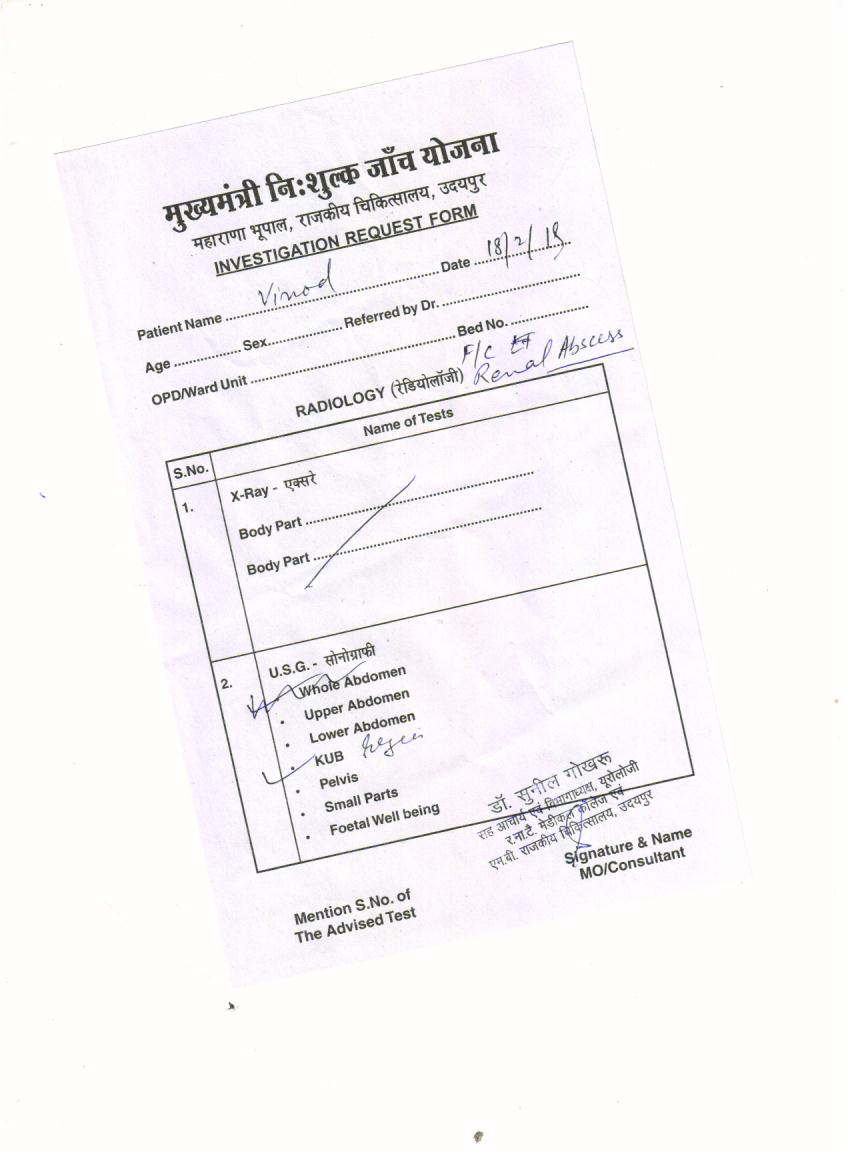 मुख्यमंत्री नि:शुल्क जाँच योजना
महाराणा भूपाल, राजकीय चिकित्सालय, उदयपुर
INVESTIGATION REQUEST FORM
Patient Name Vinod Date 18/2/19
Age Sex Referred by Dr.
OPD/Ward Unit Bed No.
F/C
RADIOLOGY (रेडियोलॉजी) Renal Abscess
S.No. Name of Tests
1. X-Ray - एक्सरे
Body Part
Body Part
2. U.S.G. - सोनोग्राफी
Whole Abdomen
• Upper Abdomen
• Lower Abdomen
• KUB
• Pelvis
• Small Parts
• Foetal Well being
डॉ. सुनील गोखरू
सह आचार्य एवं विभागाध्यक्ष, यूरोलोजी
र.ना.टै. मेडीकल कॉलेज एवं
एम.बी. राजकीय चिकित्सालय, उदयपुर
Signature & Name
MO/Consultant
Mention S.No. of
The Advised Test